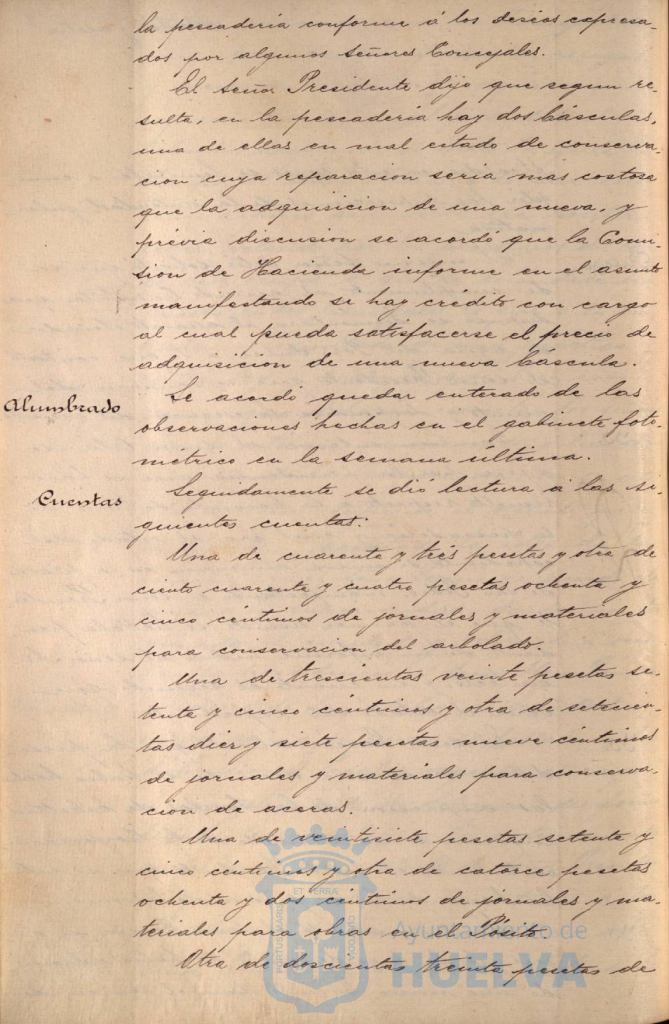 la pescaderia conforme á los deseos expresa-
dos por algunos Señores Concejales.
El Señor Presidente dijo que segun re-
sulta, en la pescaderia hay dos básculas,
una de ellas en mal estado de conserva-
cion cuya reparacion seria mas costosa
que la adquisicion de una nueva, y
prévia discusion se acordó que la Comi-
sion de Hacienda informe en el asunto
manifestando si hay crédito con cargo
al cual pueda satisfacerse el precio de
adquisicion de una nueva báscula.
Alumbrado
Se acordó quedar enterado de las
observaciones hechas en el gabinete foto-
métrico en la semana última.
Cuentas
Seguidamente se dió lectura á las si-
guientes cuentas:
Una de cuarenta y trés pesetas y otra de
ciento cuarenta y cuatro pesetas ochenta y
cinco céntimos de jornales y materiales
para conservacion del arbolado.
Una de trescientas veinte pesetas se-
tenta y cinco céntimos y otra de setecien-
tas diez y siete pesetas nueve céntimos
de jornales y materiales para conserva-
cion de aceras.
Una de veintisiete pesetas setenta y
cinco céntimos y otra de catorce pesetas
ochenta y dos céntimos de jornales y ma-
teriales para obras en el Pósito.
Otra de doscientas treinta pesetas de
Ayuntamiento de
HUELVA